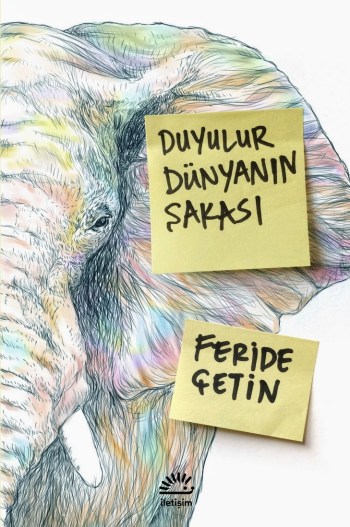 DUYULUR
DÜNYANIN
ŞAKASI
FERİDE
ÇETİN
iletişim